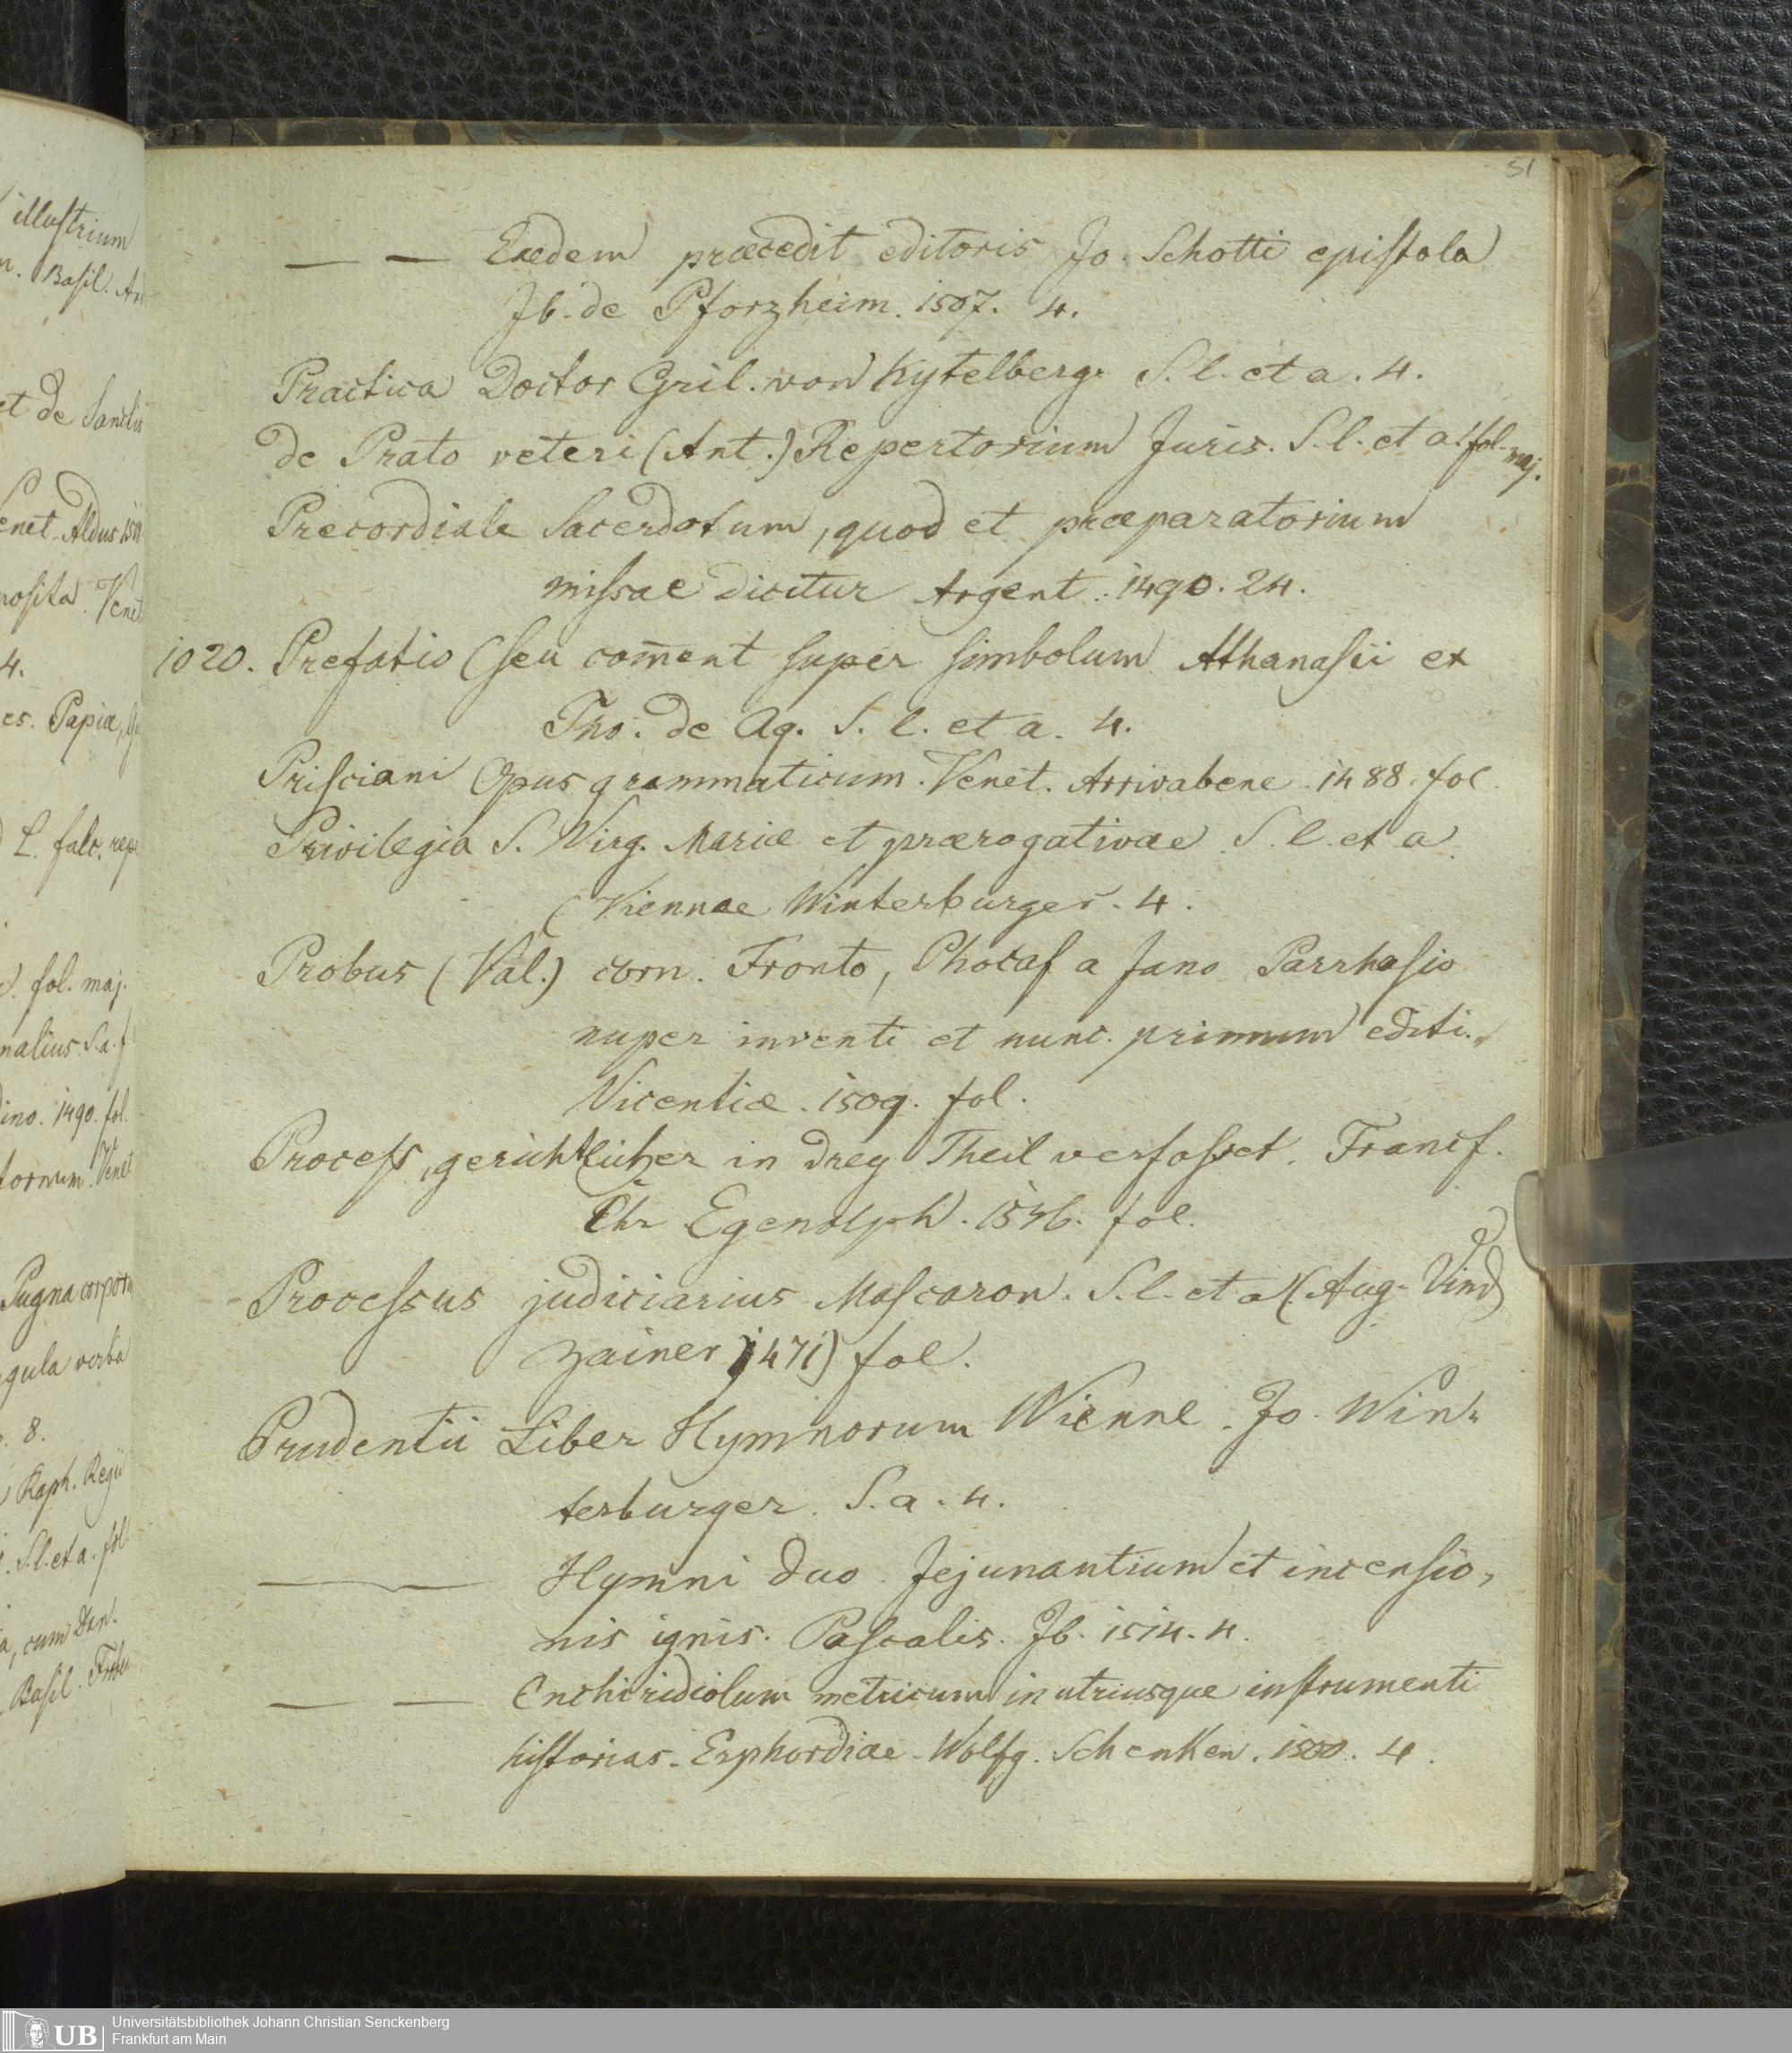 illustrium
n. Basil.
et de Sanctis
enet. Aldus
posita. Venet
4.
es. Papiæ,
L. falc. rep
fol. maj.
nalius. S.a. f
ino. 1490. fol.
tornum. Venet
Pugna corpor
gula verba
8.
Raph. Regii
S.l. et a. fol.
a, cum
Basil.
51
— — Eædem præcedit editoris Jo. Schotti epistola
Jb. de Pforzheim. 1507. 4.
Practica Doctor Gril. von Kytelberg. S. l. et a. 4.
de Prato veteri (Ant.) Repertorium Juris. S. l. et a. fol. maj.
Precordiale Sacerdotum, quod et præparatorium
missae dicitur Argent. 1490. 24.
1020. Prefatio (seu com̄ent super simbolum Athanasii ex
Tho. de Aq. S. l. et a. 4.
Prisciani Opus grammaticum. Venet. Arrivabene. 1488. fol.
Privilegia S. Virg. Mariæ et prærogativae S. l. et a.
(Viennae Winterburger. 4.
Probus (Val.) corn. Fronto, Phocas a Jano Parrhasio
nuper inventi et nunc. primum editi.
Vicentiæ. 1509. fol.
Process, gerichtlicher in drey Theil verfasset. Francf.
Chr Egenolph. fol.
Processus judiciarius Mascaron. S. l. et a (Aug. Vind
Zainer 1471) fol.
Prudentii Liber Hymnorum Wienne. Jo. Win-
terburger. S. a. 4.
— — Hymni duo. Jejunantium et incensio-
nis ignis. Pascalis. Jb. 1514. 4.
— — Enchiridiolum metricum in utriusque instrumenti
historias. Erphordiae. Wolfg. Schenken. 1500. 4.
UB
Universitätsbibliothek Johann Christian Senckenberg
Frankfurt am Main